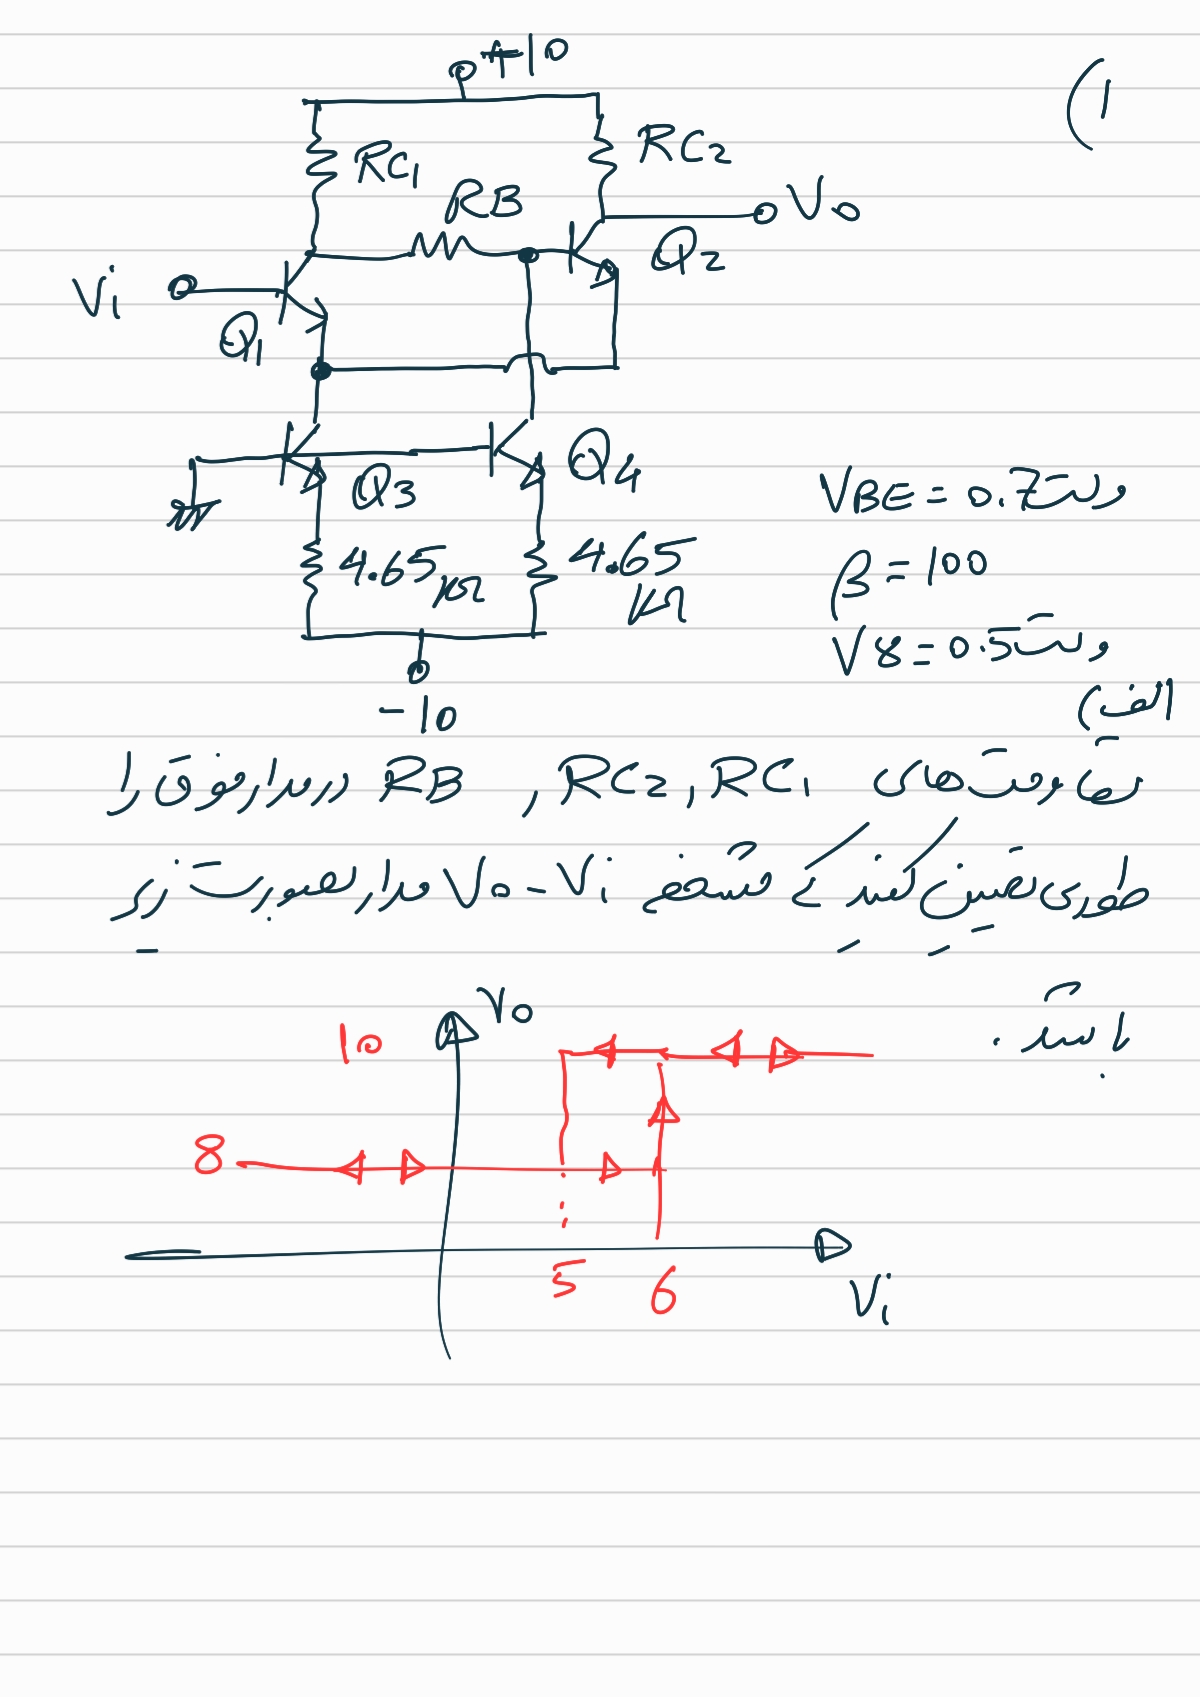 (1
+10
RC1
RC2
RB
Vo
Vi
Q1
Q2
Q3
Q4
4.65 kΩ
4.65 kΩ
-10
VBE = 0.7 ولت
β = 100
Vγ = 0.5 ولت
الف)
مقاومت‌های RC1 , RC2 , RB در مدار فوق را
طوری تعیین کنید که مشخصه Vo - Vi مدار بصورت زیر
باشد.
Vo
10
8
5
6
Vi